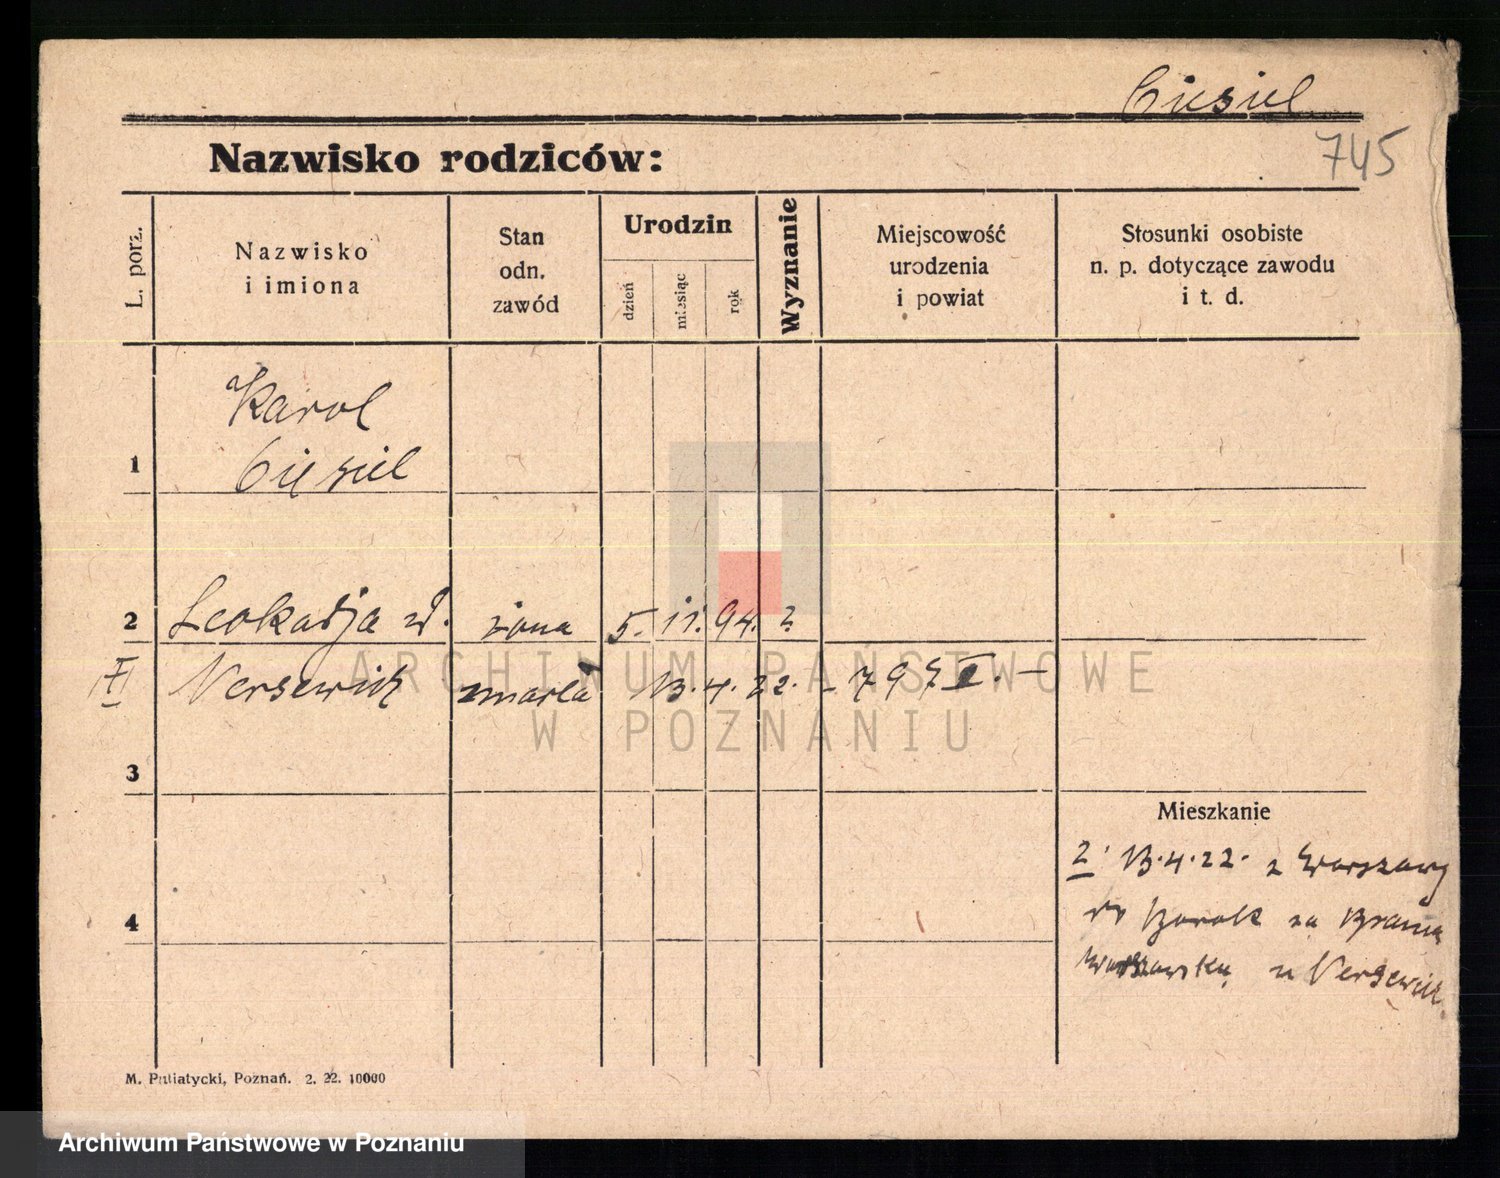 Ciesiel
745
Nazwisko rodziców:
L. porz.
Nazwisko
i imiona
Stan
odn.
zawód
Urodzin
dzień
miesiąc
rok
Wyznanie
Miejscowość
urodzenia
i powiat
Stosunki osobiste
n. p. dotyczące zawodu
i t. d.
1
Karol
Ciesiel
2
Leokadja
żona
5. 11. 94. ?
Versewick zmarła 13.4.22. - 797 I. -
3
Mieszkanie
2. 13.4.22. z Warszawy
4
na Brama
Warszawska u Versewick.
M. Putiatycki, Poznań. 2. 22. 10000
ARCHIWUM PAŃSTWOWE
W POZNANIU
Archiwum Państwowe w Poznaniu